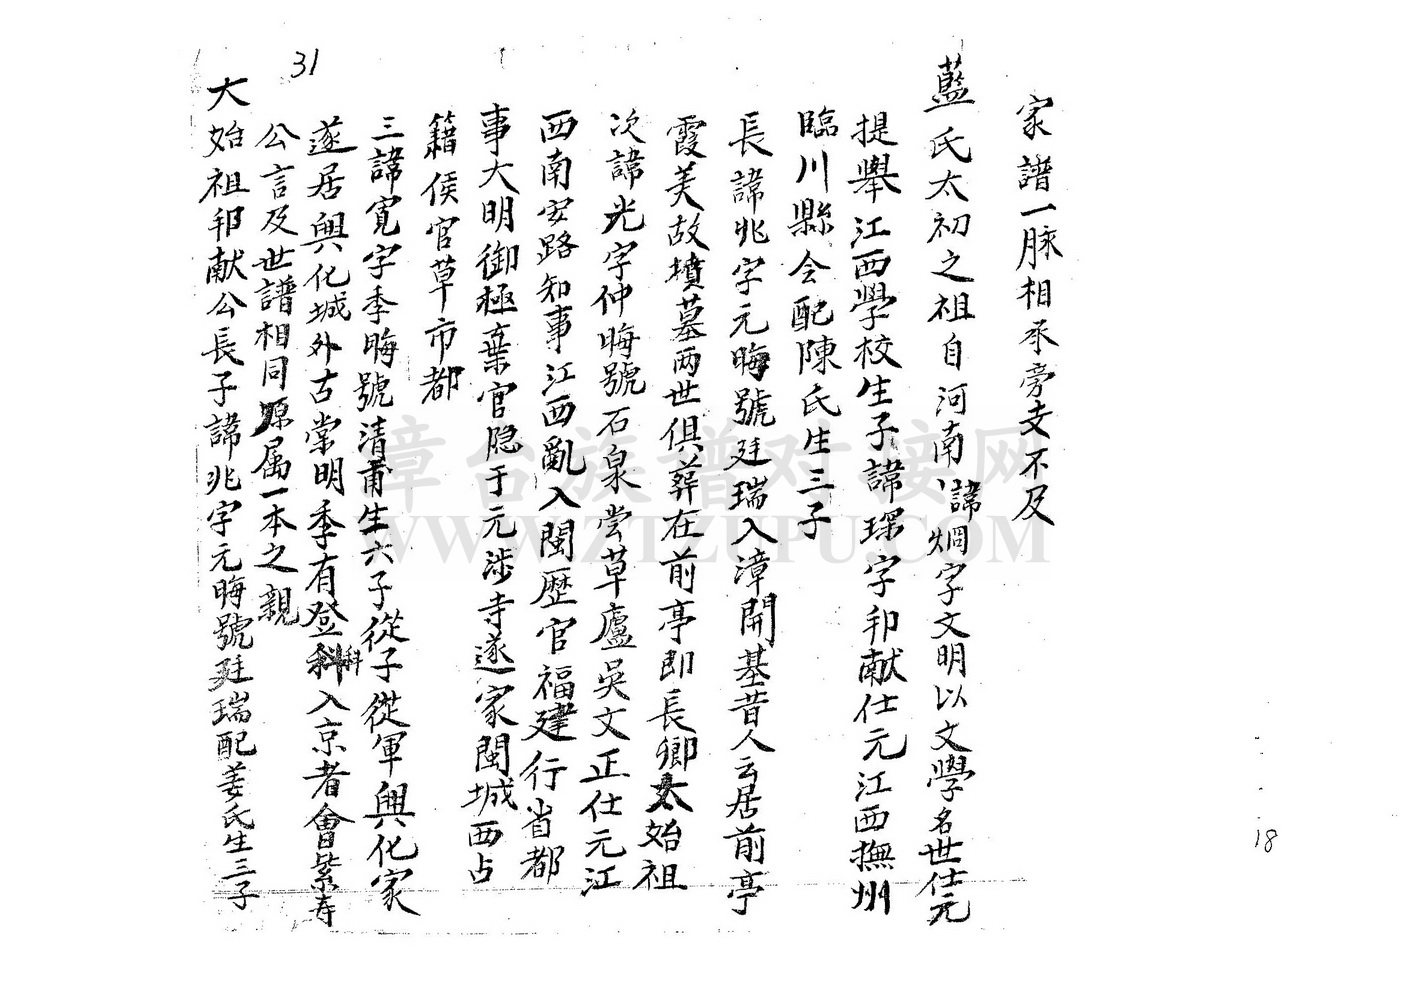 家譜一脉相承旁支不及
藍氏太初之祖自河南諱烱字文明以文學名世仕元
提舉江西學校生子諱琛字卭献仕元江西撫州
臨川縣令配陳氏生三子
長諱兆字元晦號廷瑞入漳開基昔人云居前亭
霞美故墳墓两世俱葬在前亭即長鄉太始祖
次諱光字仲晦號石泉尝草廬吳文正仕元江
西南安路知事江西亂入閩歷官福建行省都
事大明御極棄官隐于元涉寺遂家閩城西占
籍侯官草市都
三諱寛字季晦號清莆生六子從子從軍興化家
遂居興化城外古棠明季有登科入京者會紫寿
公言及世譜相同原属一本之親
大始祖卭献公長子諱兆字元晦號廷瑞配姜氏生三子
31
18
章台族谱对接网
WWW.ZTZUPU.COM